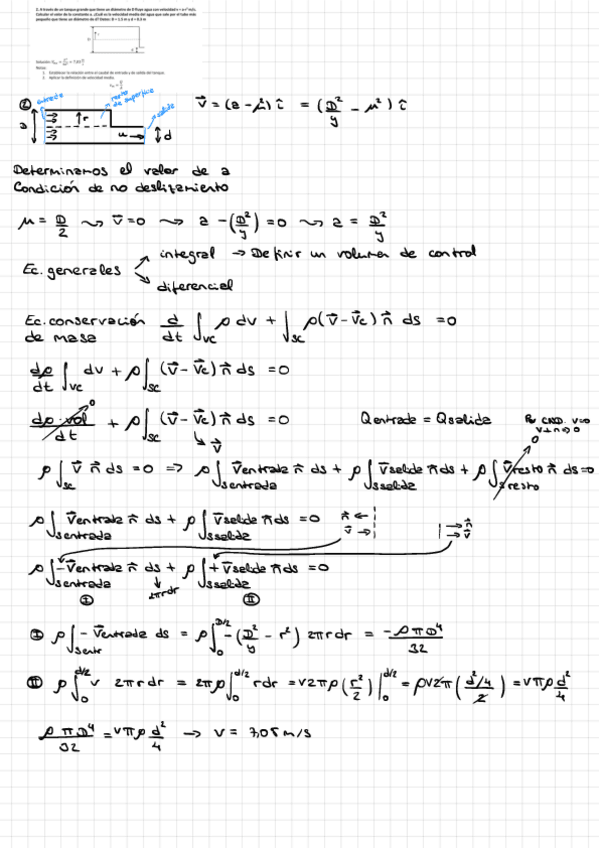 2. A través de un tanque grande que tiene un diámetro de D fluye agua con velocidad v = a-r² m/s.
Calcular el valor de la constante a. ¿Cuál es la velocidad media del agua que sale por el tubo más
pequeño que tiene un diámetro de d? Datos: D = 1.5 m y d = 0.3 m
Notas:
1. Establecer la relación entre el caudal de entrada y de salida del tanque.
2. Aplicar la definición de velocidad media.
② entrada resto de superficie salida
a r u d
v⃗ = (a - μ²) î = (D²/y - μ²) î
Determinamos el valor de a
Condición de no deslizamiento
μ = D/2 ⇝ v⃗=0 ⇝ a -(D²/y) =0 ⇝ a = D²/y
Ec. generales
integral → Definir un volumen de control
diferencial
Ec. conservación de masa d/dt ∫vc ρ dv + ∫sc ρ(v⃗-v⃗c) n⃗ ds =0
dρ/dt ∫vc dv + ρ∫sc (v⃗-v⃗c) n⃗ ds =0
dρ·vol/dt 0 + ρ∫sc (v⃗-v⃗c) n⃗ ds =0 Qentrada = Qsalida
v⃗
ρ∫sc v⃗ n⃗ ds =0 => ρ∫sentrada v⃗entrada n⃗ ds + ρ∫ssalida v⃗salida n⃗ ds + ρ∫sresto v⃗resto n⃗ ds=0
ρ∫sentrada v⃗entrada n⃗ ds + ρ∫ssalida v⃗salida n⃗ ds =0 n⃗ ← v⃗ → → n⃗ → v⃗
ρ∫sentrada -v⃗entrada n⃗ ds + ρ∫ssalida +v⃗salida n⃗ ds =0
2πrdr
Ⓘ Ⓘ Ⓘ
Ⓘ ρ∫sentr - v⃗entrada ds = ρ∫₀^D/2 -(D²/y - r²) 2πrdr = -ρπD⁴/32
Ⓘ Ⓘ ρ∫₀^d/2 v 2πrdr = 2πρ∫₀^d/2 rdr = v2πρ(r²/2)|₀^d/2 = ρv2π(d²/4/2) = vπρ d²/4
ρπD⁴/32 = vπρ d²/4 → v = 7,05 m/s